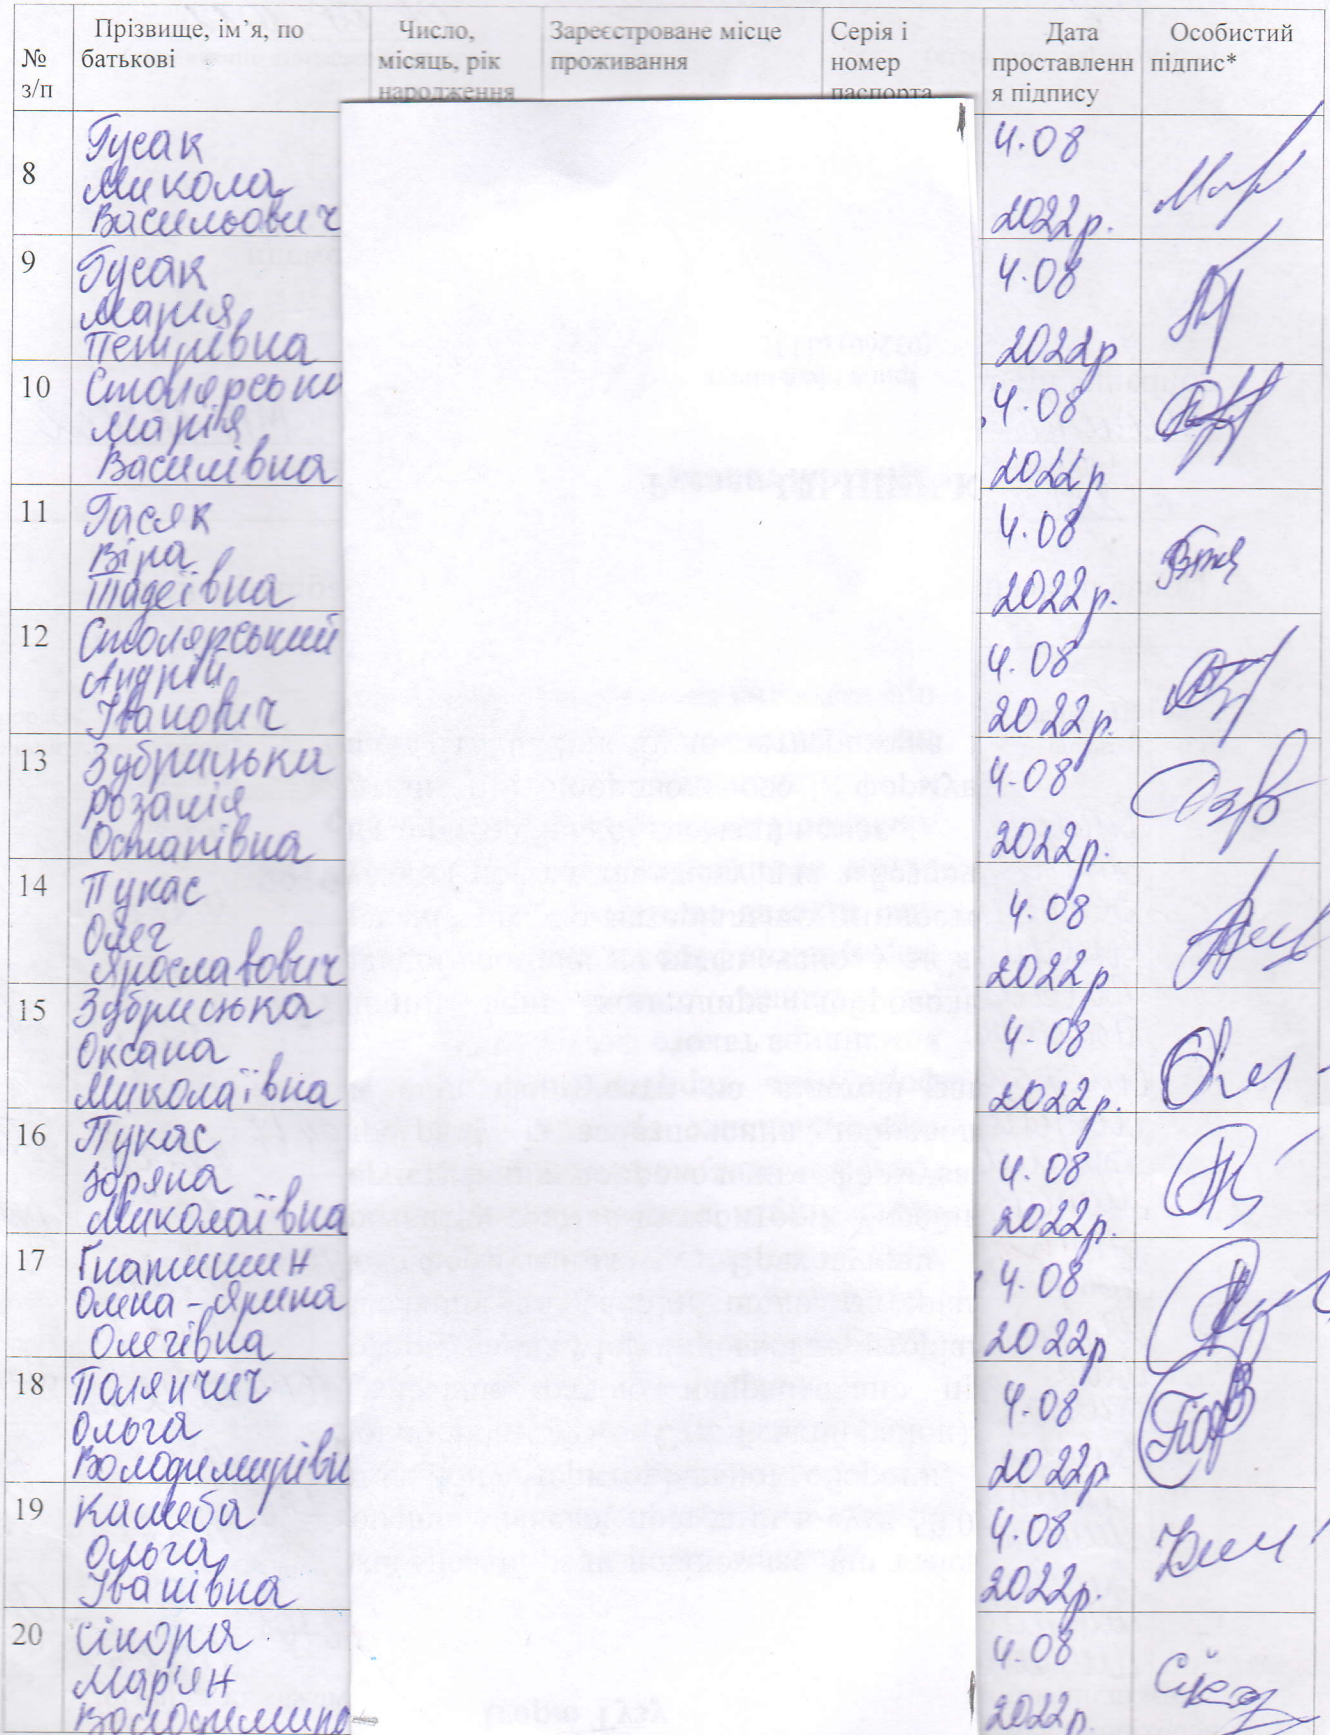 № з/п
Прізвище, ім’я, по батькові
Число, місяць, рік народження
Зареєстроване місце проживання
Серія і номер паспорта
Дата проставленн я підпису
Особистий підпис*
8
Гусак
Микола
Васильович
4.08
2022р.
9
Гусак
Марія
Петрівна
4.08
2022р
10
Столярська
Марія
Василівна
4.08
2022р
11
Гасяк
Віра
Тадеївна
4.08
2022р.
12
Столярський
Андрій
Іванович
4.08
2022р.
13
Зубрицька
Розалія
Остапівна
4.08
2022р.
14
Пукас
Олег
Ярославович
4.08
2022р
15
Зубрицька
Оксана
Миколаївна
4.08
2022р.
16
Пукас
Юряна
Миколаївна
4.08
2022р.
17
Гнатишин
Олена-Ярина
Олегівна
4.08
2022р
18
Полянчич
Ольга
Володимирівн
4.08
2022р
19
Кашеба
Ольга
Іванівна
4.08
2022р.
20
Сікора
Мар'ян
4.08
2022р.